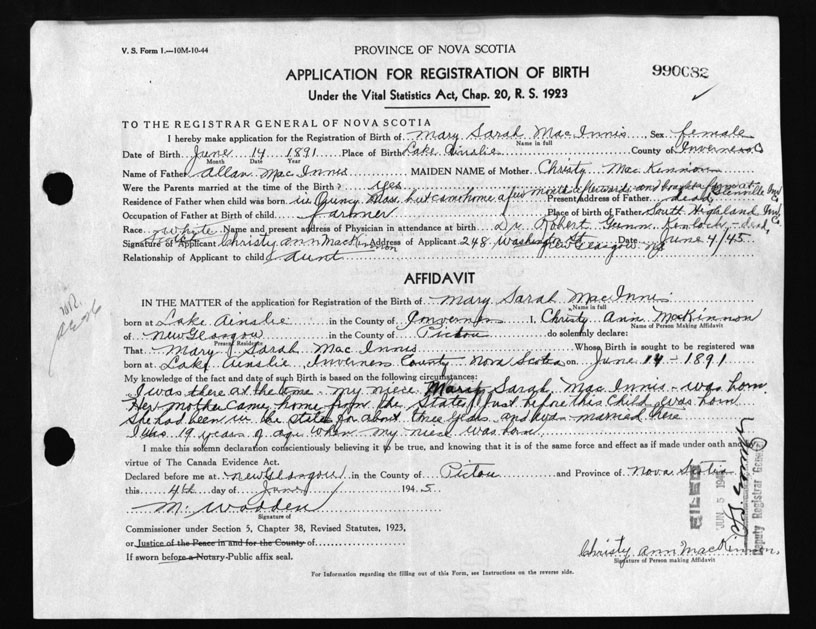 V. S. Form 1.—10M-10-44
PROVINCE OF NOVA SCOTIA
APPLICATION FOR REGISTRATION OF BIRTH
990082
Under the Vital Statistics Act, Chap. 20, R. S. 1923
TO THE REGISTRAR GENERAL OF NOVA SCOTIA
I hereby make application for the Registration of Birth of Mary Sarah MacInnis, Sex female
Name in full
Date of Birth June 14 1891 Place of Birth Lake Ainslie County of Inverness
Month Date Year
Name of Father Allan MacInnis MAIDEN NAME of Mother Christy MacKinnon
Were the Parents married at the time of the Birth? yes
Residence of Father when child was born in Quincy Mass. but came home a few months afterwards and bought a farm at Glenville Inv Co.
Present Address of Father dead
Occupation of Father at Birth of child Farmer Place of birth of Father South Highland Inv. Co.
Race white Name and present address of Physician in attendance at birth Dr Robert Gunn. Kinlock - dead.
Scotch
Signature of Applicant Christy Ann MacKinnon Address of Applicant 248 Washington St New Glasgow NS Date June 4/45
Relationship of Applicant to child Aunt
AFFIDAVIT
IN THE MATTER of the application for Registration of the Birth of Mary Sarah MacInnis
Name in full
born at Lake Ainslie in the County of Inverness I, Christy Ann MacKinnon
Name of Person Making Affidavit
of New Glasgow in the County of Pictou do solemnly declare:
Present Residence
That Mary Sarah MacInnis Whose Birth is sought to be registered was
born at Lake Ainslie Inverness County Nova Scotia on June 14 - 1891
My knowledge of the fact and date of such Birth is based on the following circumstances:
I was there at the time - my niece Mary Sarah MacInnis - was born.
Her mother came home from the States just before this child was born
She had been in the States for about three years and was married there
I was 19 years of age when my niece was born.
I make this solemn declaration conscientiously believing it to be true, and knowing that it is of the same force and effect as if made under oath and by
virtue of The Canada Evidence Act.
Declared before me at New Glasgow in the County of Pictou and Province of Nova Scotia
this 4th day of June 1945
M. Wooden
Signature of
Commissioner under Section 5, Chapter 38, Revised Statutes, 1923,
or Justice of the Peace in and for the County of
If sworn before a Notary Public affix seal.
FILED
JUN 5 194
Deputy Registrar General
Christy Ann MacKinnon.
Signature of Person making Affidavit
For Information regarding the filling out of this Form, see Instructions on the reverse side.